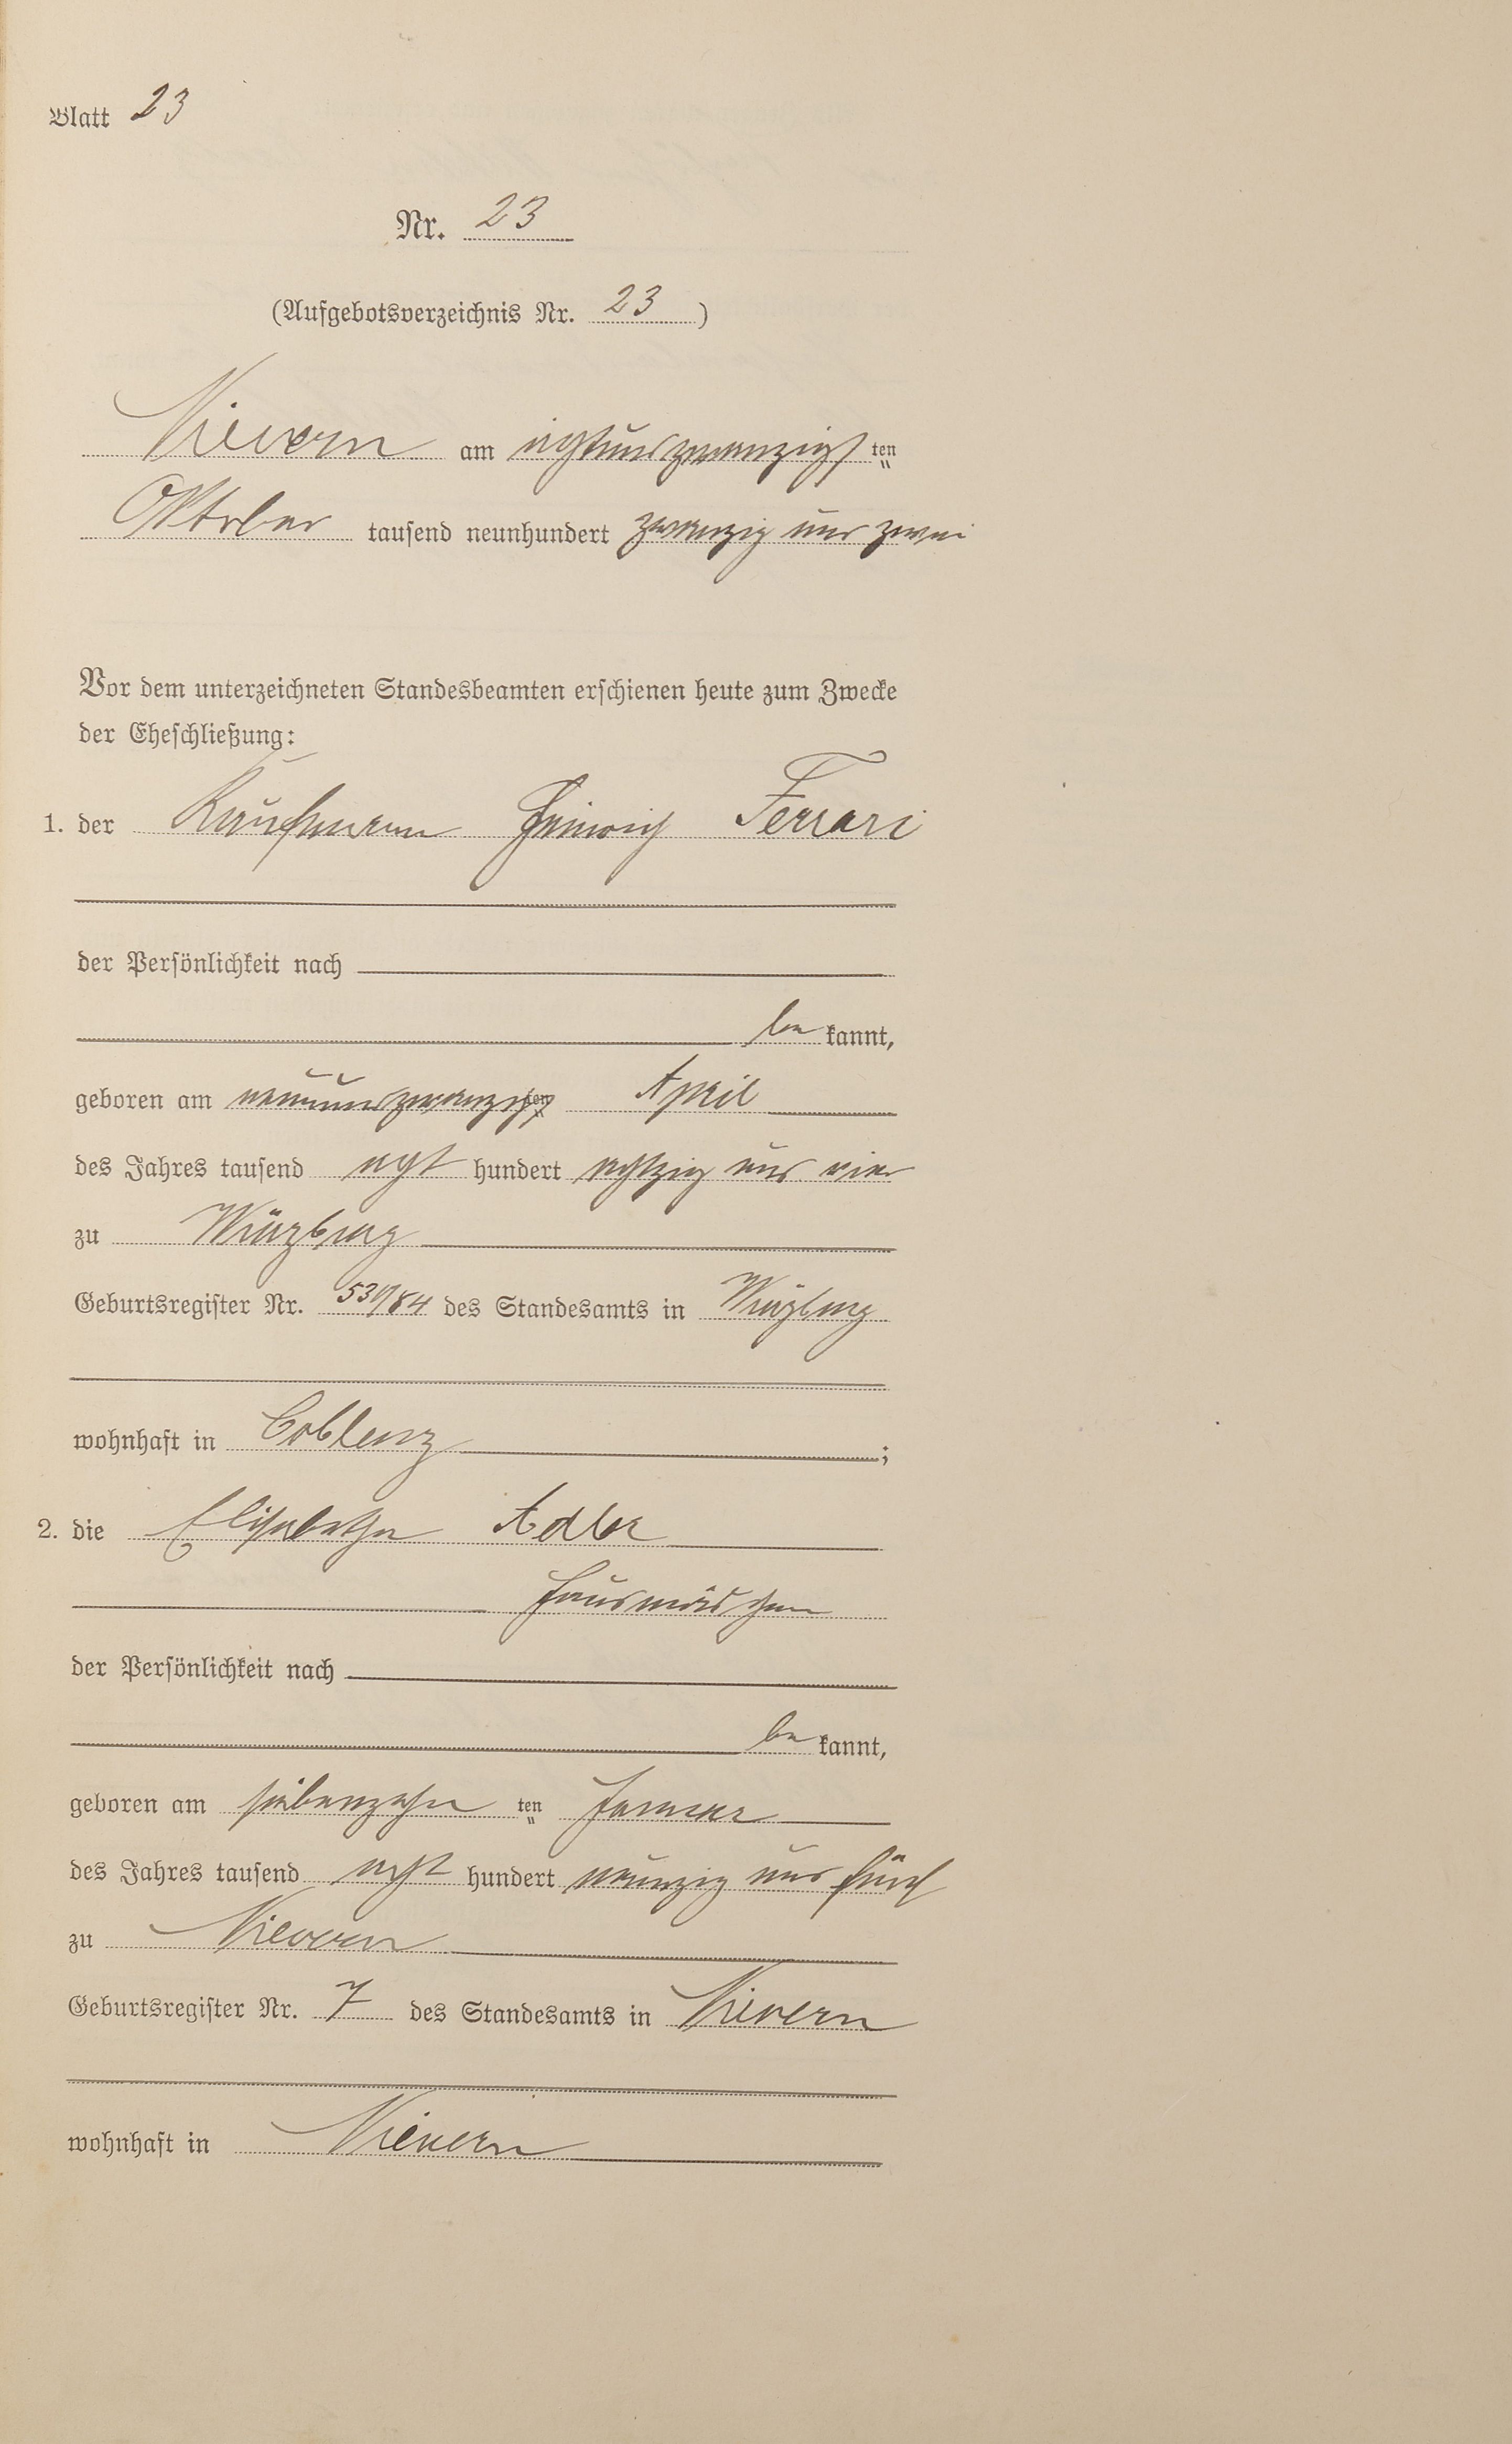 Blatt 23
Nr. 23
(Aufgebotsverzeichnis Nr. 23)
Nievern am achtundzwanzigsten
Oktober tausend neunhundert zwanzig und zwei
Vor dem unterzeichneten Standesbeamten erschienen heute zum Zwecke
der Eheschließung:
1. der Kaufmann Heinrich Ferrari
der Persönlichkeit nach
bekannt,
geboren am neunundzwanzigsten April
des Jahres tausend acht hundert achtzig und vier
zu Würzburg
Geburtsregister Nr. des Standesamts in Würzburg
wohnhaft in Coblenz;
2. die Elisabetha Adler
Hausmädchen
der Persönlichkeit nach
bekannt,
geboren am siebenzehnten Januar
des Jahres tausend acht hundert neunzig und fünf
zu Nievern
Geburtsregister Nr. 7 des Standesamts in Nievern
wohnhaft in Nievern